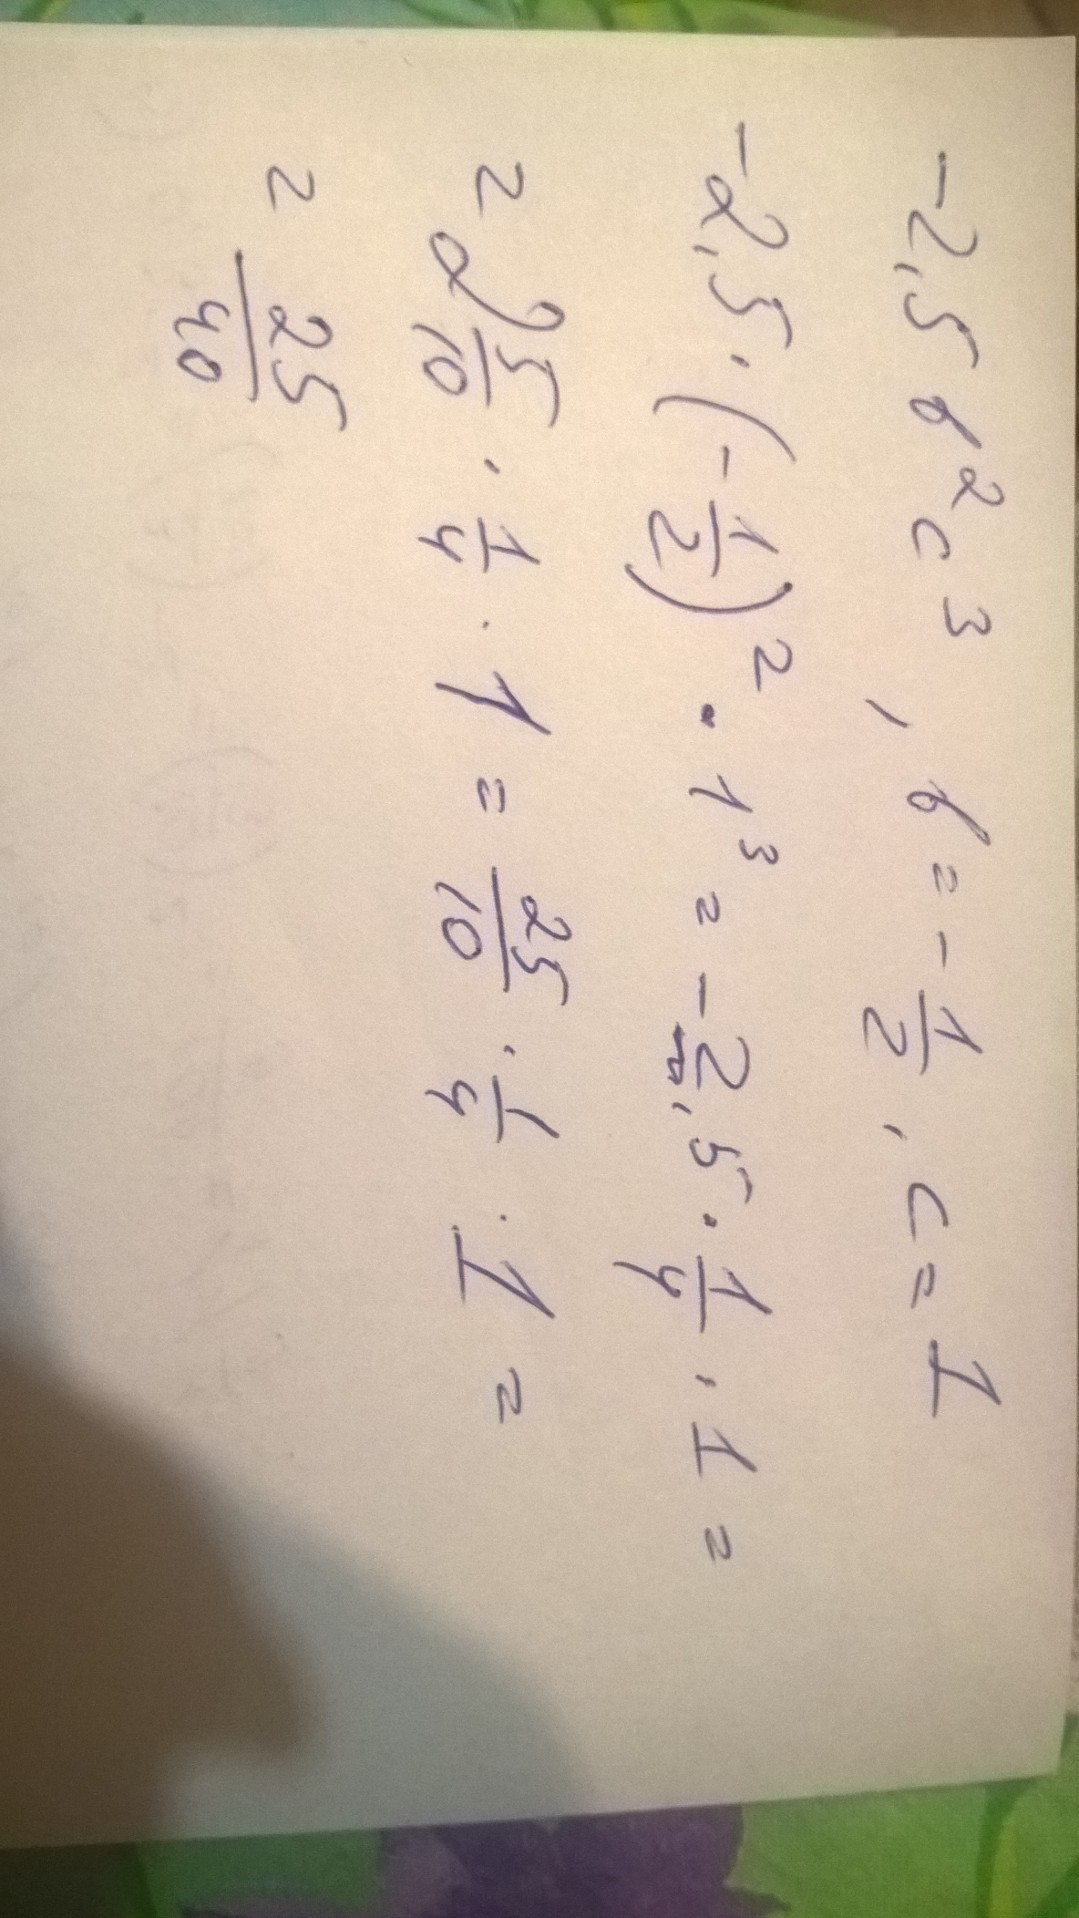 -2,5 b²c³, b = -1/2, c = 1
-2,5 · (-1/2)² · 1³ = -2,5 · 1/4 · 1 =
= 2 5/10 · 1/4 · 1 = 25/10 · 1/4 · 1 =
= 25/40